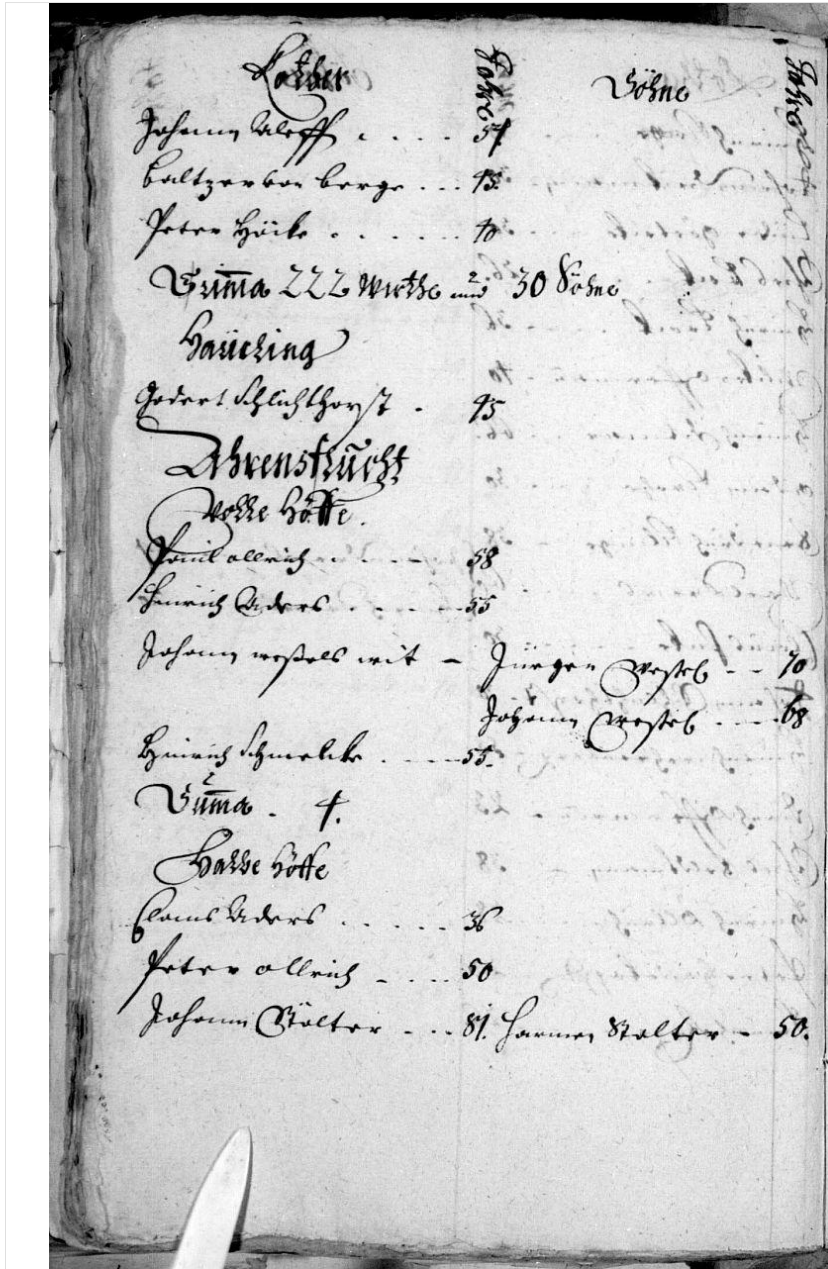 Köther Jahr Söhne Jahre
Johann Aleff . . . . 54
Baltzer von Berge . . . 45.
Peter Höike . . . . . 40
Summa 222 Wirthe und 30 Söhne
Häusling
Godert Schlichthorst . 45
Ahrensflucht
Volle Höffe.
Paul ollrich . . . . 58
Hinrich Aders . . . . . 55
Johann weßels wit – Jürgen Weßel – – 70
Johann Weßel – – – 68
Hinrich Schmelcke . . . 55.
Summa . 4.
Halbe Höffe
Claus Aders . . . . . 36
Peter ollrich – . . . 50
Johann Stölter – . . 81. Harmen Stalter – 50.